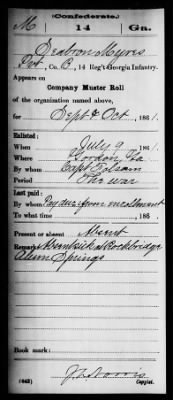 (Confederate.)
M 14 Ga.
Seabron Myres
Pvt, Co. B, 14 Reg't Georgia Infantry.
Appears on
Company Muster Roll
of the organization named above,
for Sept & Oct, 1861.
Enlisted:
When July 9, 1861.
Where Gordon, Ga
By whom Capt Folsom
Period The war
Last paid:
By whom Pay due from enrollment
To what time , 186 .
Present or absent Absent
Remarks: Absent sick at Rockbridge
Alum Springs
Book mark:
(642) J T Norris
Copyist.